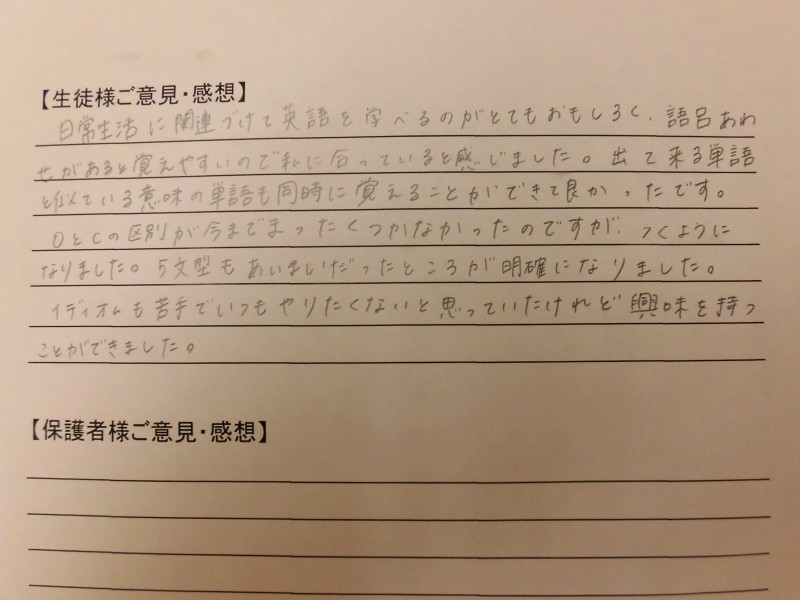 【生徒様ご意見・感想】
日常生活に関連づけて英語を学べるのがとてもおもしろく、語呂あわ
せがあると覚えやすいので私に合っていると感じました。出て来る単語
と似ている意味の単語も同時に覚えることができて良かったです。
OとCの区別が今までまったくつかなかったのですが、つくように
なりました。5文型もあいまいだったところが明確になりました。
イディオムも苦手でいつもやりたくないと思っていたけれど興味を持つ
ことができました。
【保護者様ご意見・感想】